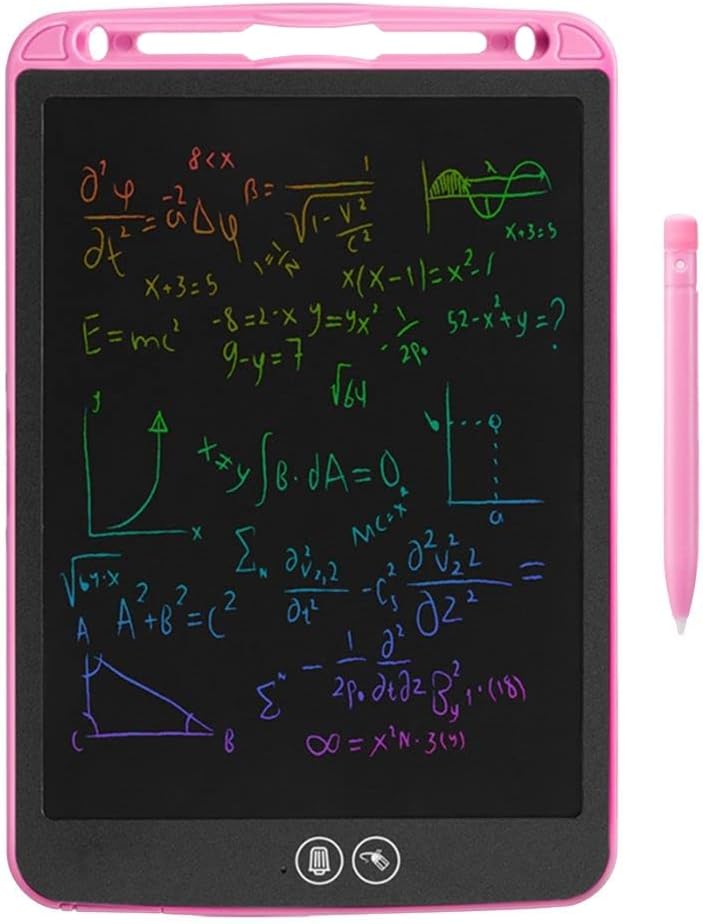 8<x
∂²φ/∂t² = a⁻²Δφ
β = 1/√(1-v²/c²)
λ
x+3=5
1=1/N
x+3=5
x(x-1)=x²-1
E=mc²
-8=2-x
y=yx²
-1/2ρ₀
52-x²+y=?
9-y=7
√64
y
x
x≠y
∫B·dA=0
b
a
mc=x²
√64·x
Σ_N ∂²V₂,2/∂t² - C_s² ∂²V₂2/∂z² =
A²+B²=C²
A
C
B
Σᴺ - 1/2ρ₀ ∂²/∂t∂z B_y²,·(18)
∞ = x²N·3(y)